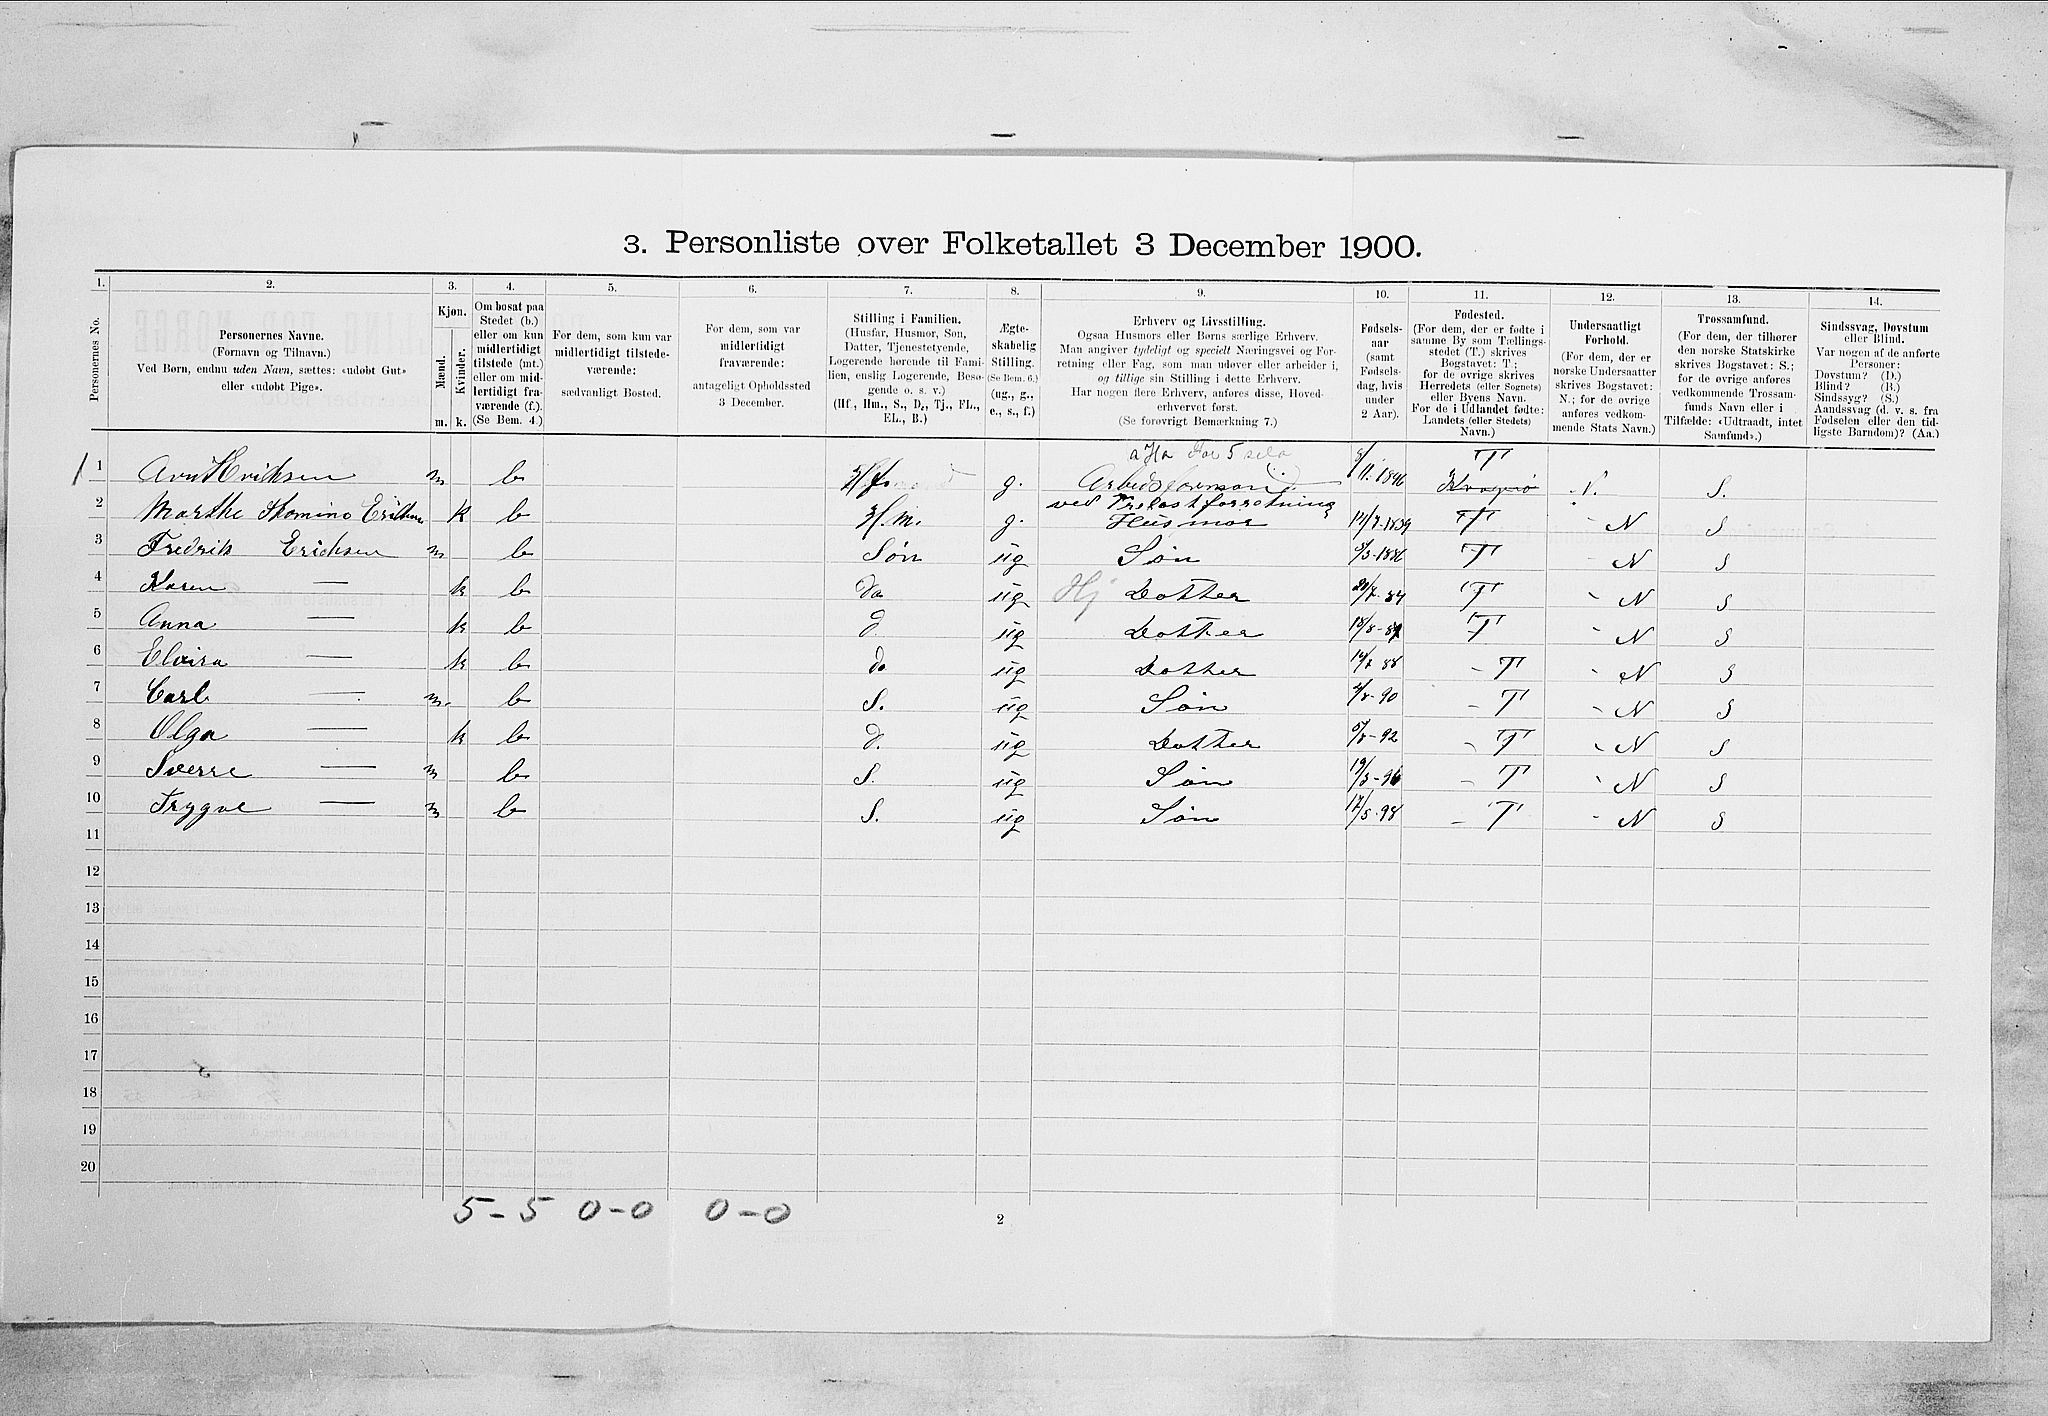 3. Personliste over Folketallet 3 December 1900.
1. 2. 3. 4. 5. 6. 7. 8. 9. 10. 11. 12. 13. 14.
Personernes No.
Personernes Navne.
(Fornavn og Tilnavn.)
Ved Børn, endnu uden Navn, sættes: «udøbt Gut»
eller «udøbt Pige».
Kjøn.
Mænd.
Kvinder.
m. k.
Om bosat paa
Stedet (b.)
eller om kun
midlertidigt
tilstede (mt.)
eller om mid-
lertidigt fra-
værende (f.).
(Se Bem. 4.)
For dem, som kun var
midlertidigt tilstede-
værende:
sædvanligt Bosted.
For dem, som var
midlertidigt
fraværende:
antageligt Opholdssted
3 December.
Stilling i Familien.
(Husfar, Husmor, Søn,
Datter, Tjenestetyende,
Logerende hørende til Fami-
lien, enslig Logerende, Besø-
gende o. s. v.)
(Hf., Hm., S., D., Tj., FL.,
EL., B.)
Ægte-
skabelig
Stilling.
(Se Bem. 6.)
(ug., g.,
e., s., f.)
Erhverv og Livsstilling.
Ogsaa Husmors eller Børns særlige Erhverv.
Man angiver tydeligt og specielt Næringsvei og For-
retning eller Fag, som man udøver eller arbeider i,
og tillige sin Stilling i dette Erhverv.
Har nogen flere Erhverv, anføres disse, Hoved-
erhvervet først.
(Se forøvrigt Bemærkning 7.)
Fødsels-
aar
(samt
Fødsels-
dag, hvis
under
2 Aar).
Fødested.
(For dem, der er fødte i
samme By som Tællings-
stedet (T.) skrives
Bogstavet: T.;
for de øvrige skrives
Herredets (eller Sognets)
eller Byens Navn.
For de i Udlandet fødte:
Landets (eller Stedets)
Navn.)
Undersaatligt
Forhold.
(For dem, der er
norske Undersaatter
skrives Bogstavet:
N.; for de øvrige
anføres vedkom-
mende Stats Navn.)
Trossamfund.
(For dem, der tilhører
den norske Statskirke
skrives Bogstavet: S.;
for de øvrige anføres
vedkommende Trossam-
funds Navn eller i
Tilfælde: «Udtraadt, intet
Samfund».)
Sindssvag, Døvstum
eller Blind.
Var nogen af de anførte
Personer:
Døvstum? (D.)
Blind? (B.)
Sindssyg? (S.)
Aandssvag (d. v. s. fra
Fødselen eller den tid-
ligste Barndom)? (Aa.)
T
1 m b Hf. g. Arbeidsformand N. S.
ved Trelastforretning
2 Marthe Eriksen k b Hm. g. Husmor T N S
3 Fredrik Eriksen m b Søn ug Søn T N S
4 Karen — k b ug Hj Dotter T N S
5 Anna — k b d. ug Dotter T N S
6 Elvira — k b do ug Dotter 88 T N S
7 Carl — m. b S. ug Søn 90 T N S
8 Olga — k b d. ug Dotter 92 T N S
9 Sverre — m b S. ug Søn 19/3-96 T N S
10 Trygve — m b S. ug Søn 17/5-98 T N S
11
12
13
14
15
16
17
18
19
20
5-5 0-0 0-0
2